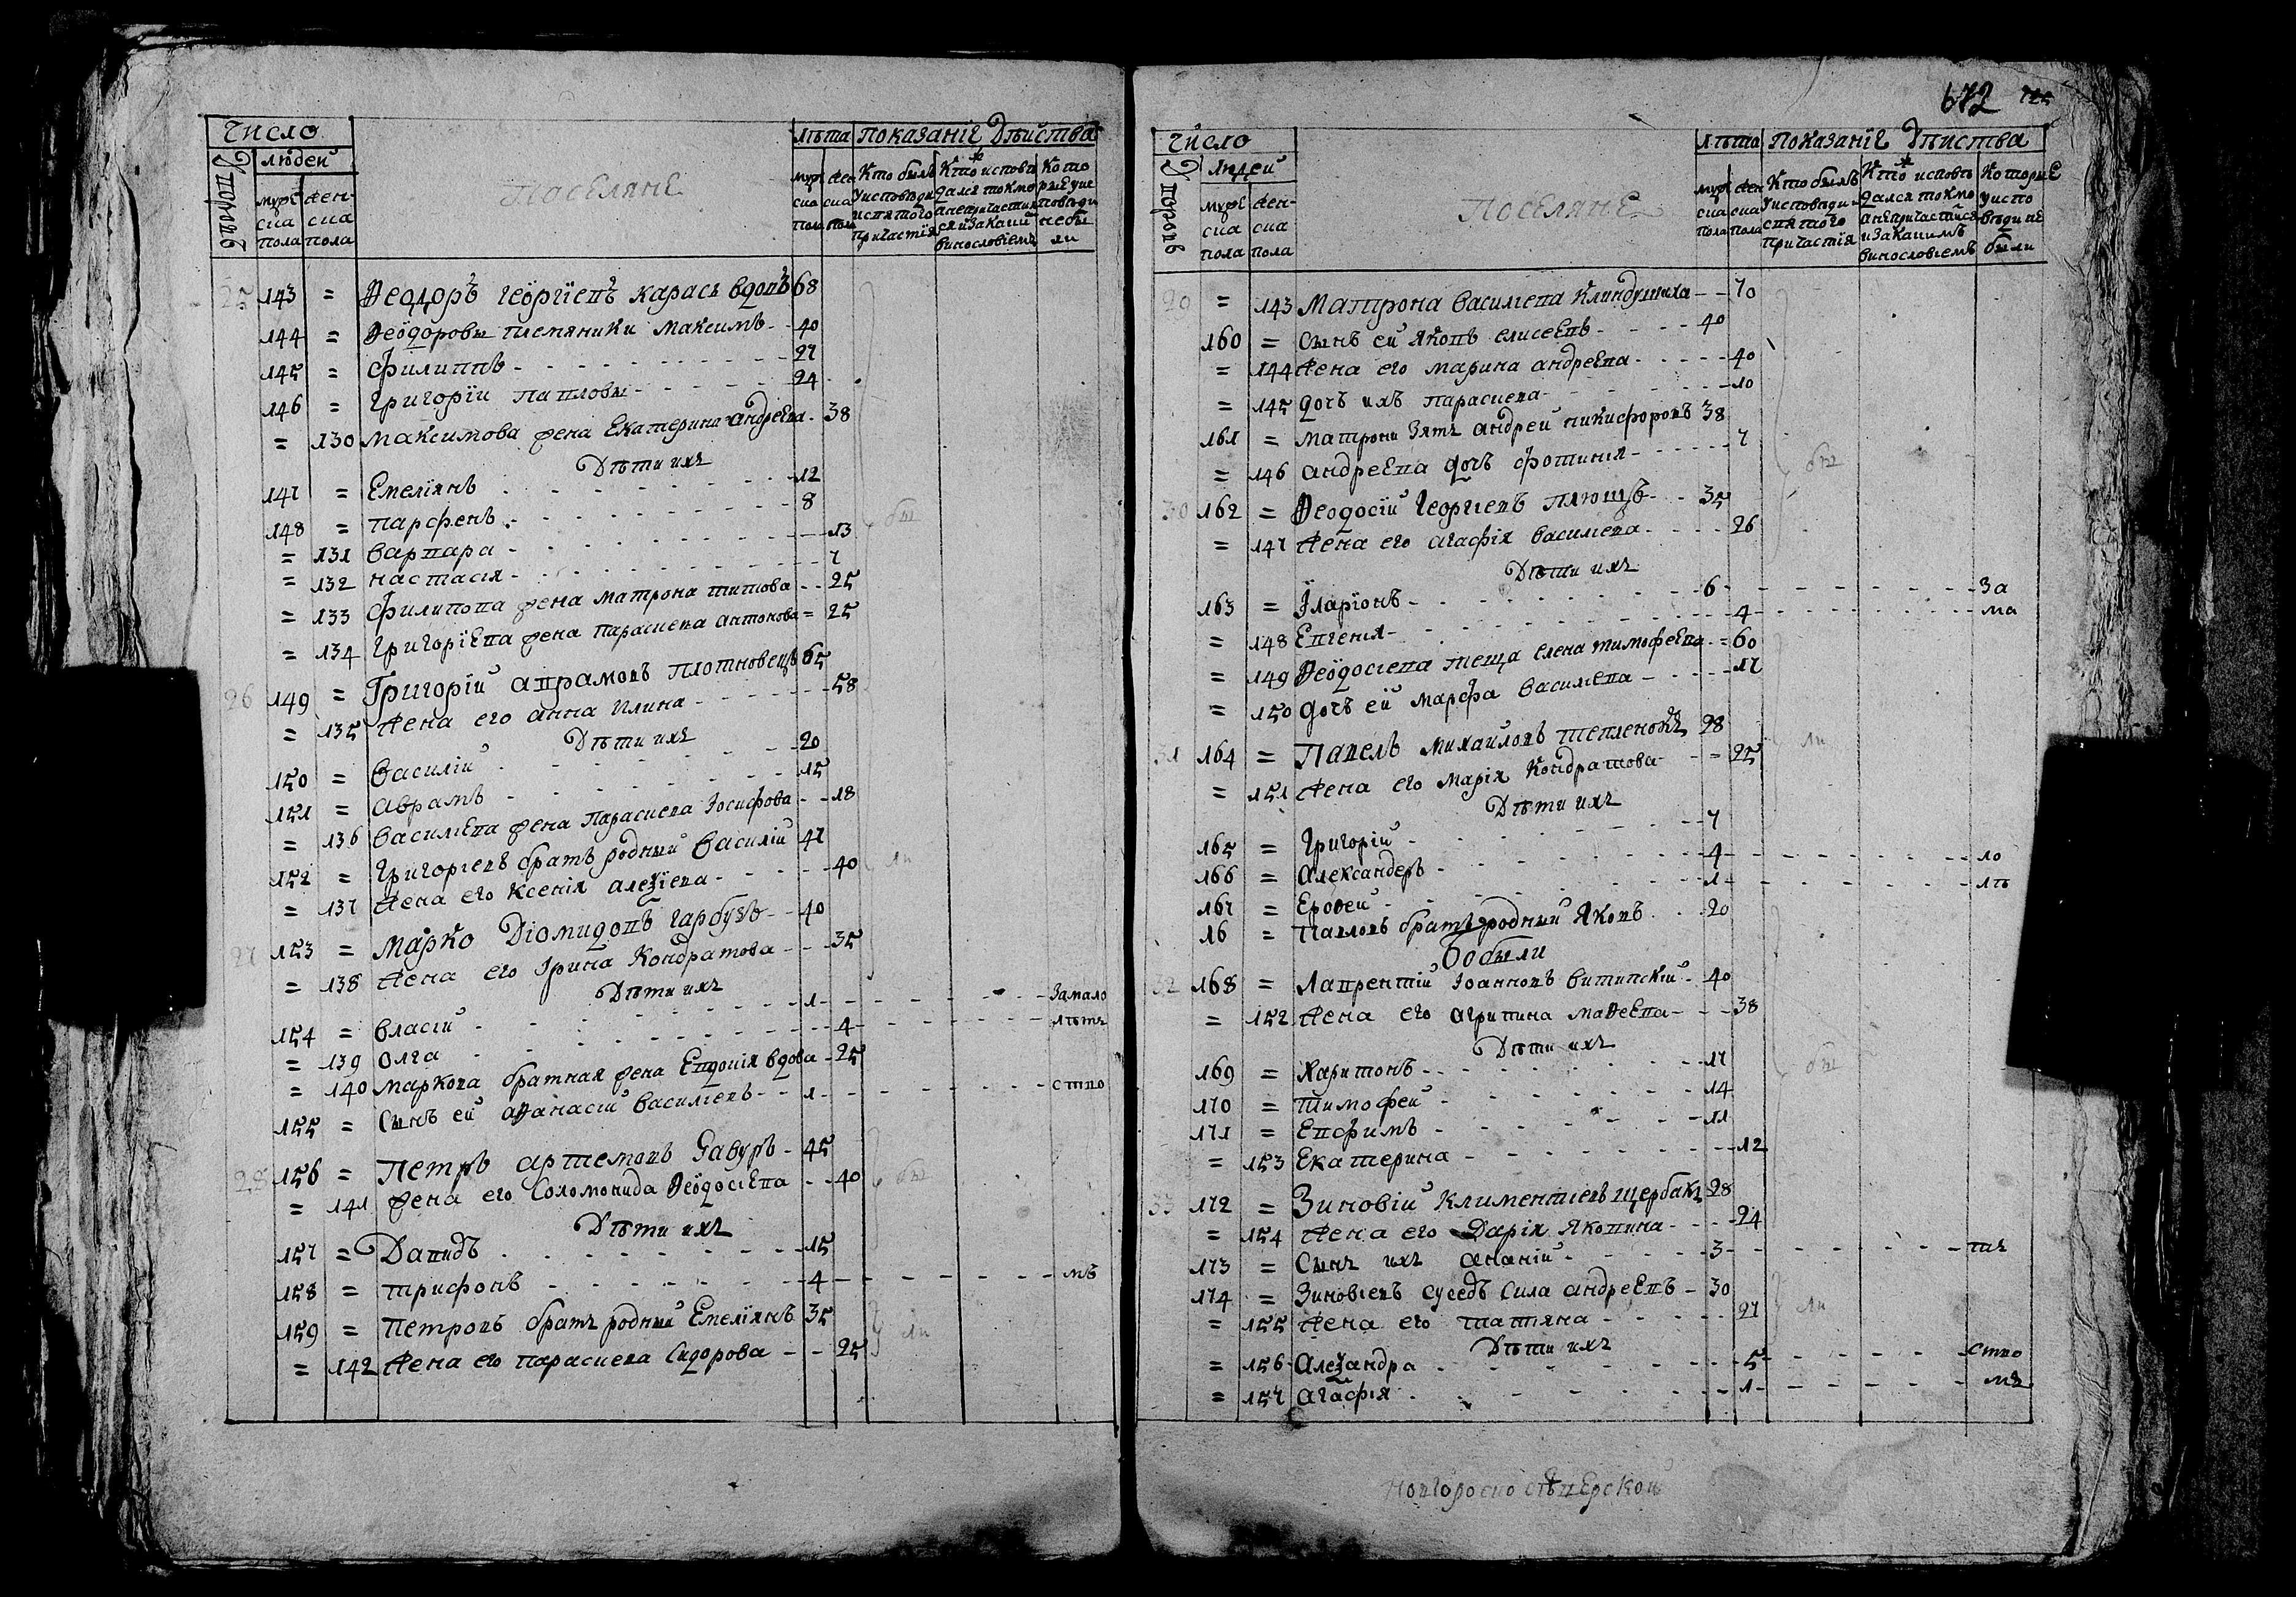 Число
Лѣта Показаніе Дѣиства
дворовъ
людеи
мужеска пола
женска пола
мужеска пола
женска пола
Кто былъ у исповѣди и святого причастія
Кто исповѣдался токмо а не причастился и за какимъ винословіемъ
Которые у исповѣди не были
Поселяне
25 143 = Ѳеодоръ Георгіевъ карась вдовъ 68
144 = Ѳеодоровы племяники Максимъ - - 40
145 = Филиппъ - - - 27
146 = Григорій Павловы - - - 24
= 130 Максимова жена Екатерина андреева - 38
Дѣти ихъ
147 = Емеліянъ - - - 12
148 = Парфенъ - - - 8
бы
= 131 варвара - - - 13
= 132 настасія - - - 7
= 133 Филипова жена матрона титова - - 25
= 134 Григоріева жена Параскева антонова = 25
26 149 = Григорій аврамовъ плотновецъ 65
= 135 Жена его анна илина - - - 58
Дѣти ихъ
150 = василій - - - 20
151 = аврамъ - - - 15
= 136 василіева жена Параскева Іосифова - - 18
152 = Григоріевъ братъ родный василій 47
= 137 Жена его ксенія алеѯіева - - - 40
ли
27 153 = Марко Діомидовъ гарбузъ - - 40
= 138 Жена его Ірина Кондратова - - - 35
Дѣти ихъ
154 = власій - - - 1 - - - За мало
= 139 олга - - - 4 - - - лѣтъ
= 140 маркова братная жена Евдокія вдова - 25
155 = Сынъ ей аѳанасій василіевъ - - 1 - - - ство
28 156 = Петръ артемовъ Бабуръ - 45
= 141 жена его Соломонида Ѳеодосіева - - 40
бы
Дѣти ихъ
157 = Давидъ - - - 15
158 = трифонъ - - - 4 - - - мъ
159 = Петровъ братъ родный Емеліянъ 35
ли
= 142 Жена его параскева Сидорова - - 25
672
Число
Лѣта Показаніе Дѣиства
дворовъ
людей
мужеска пола
женска пола
мужеска пола
женска пола
Кто былъ у исповѣди и святаго причастія
Кто исповѣдался токмо а не причастился и за какимъ винословіемъ
Которые у исповѣди не были
Поселяне
29 = 143 Матрона василіева Клиндушиха - - 70
160 = Сынъ ей яковъ елисеевъ - - - 40
= 144 Жена его марина андреева - - - 40
= 145 дочь ихъ параскева - - - 10
161 = Матрони зять андрей никифоровъ 38
= 146 андреева дочь фотинія - - - 7
бы
30 162 = Ѳеодосій Георгіевъ плющъ - - 35
= 147 Жена его агафія василіева - - - 26
Дѣти ихъ
163 = Іларіонъ - - - 6 - - - За
= 148 Евгенія - - - 4 - - - ма
= 149 Ѳеодосіева теща елена тимофеева - = 60
= 150 дочь ей марфа василіева - - - 17
31 164 = Павелъ михаиловъ тепленокъ 28
ли
= 151 Жена его марія Кондратова - - = 25
Дѣти ихъ
165 = Григорій - - - 7
166 = Александеръ - - - 4 - - - ло
167 = Ероѳеи - - - 1 - - - лѣ
16 = Павловъ братъ родный яковъ - - 20
Бобыли
32 168 = Лаврентій Іоанновъ витинскій - 40
= 152 Жена его агрипина маѳеева - - - 38
Дѣти ихъ
169 = Харитонъ - - - 17
бы
170 = тимофей - - - 14
171 = Евфимъ - - - 11
= 153 Екатерина - - - 12
33 172 = Зиновій Климентіевъ щербакъ 28
= 154 Жена его Дарія яковлина - - - 24
173 = Сынъ ихъ ананій - - - 3 - - - тъ
174 = Зиновіевъ суседъ Сила андреевъ - 30
ли
= 155 Жена его татяна - - - 27
Дѣти ихъ
= 156 Алеѯандра - - - 5 - - - ство
= 157 агафія - - - 1 - - - мъ